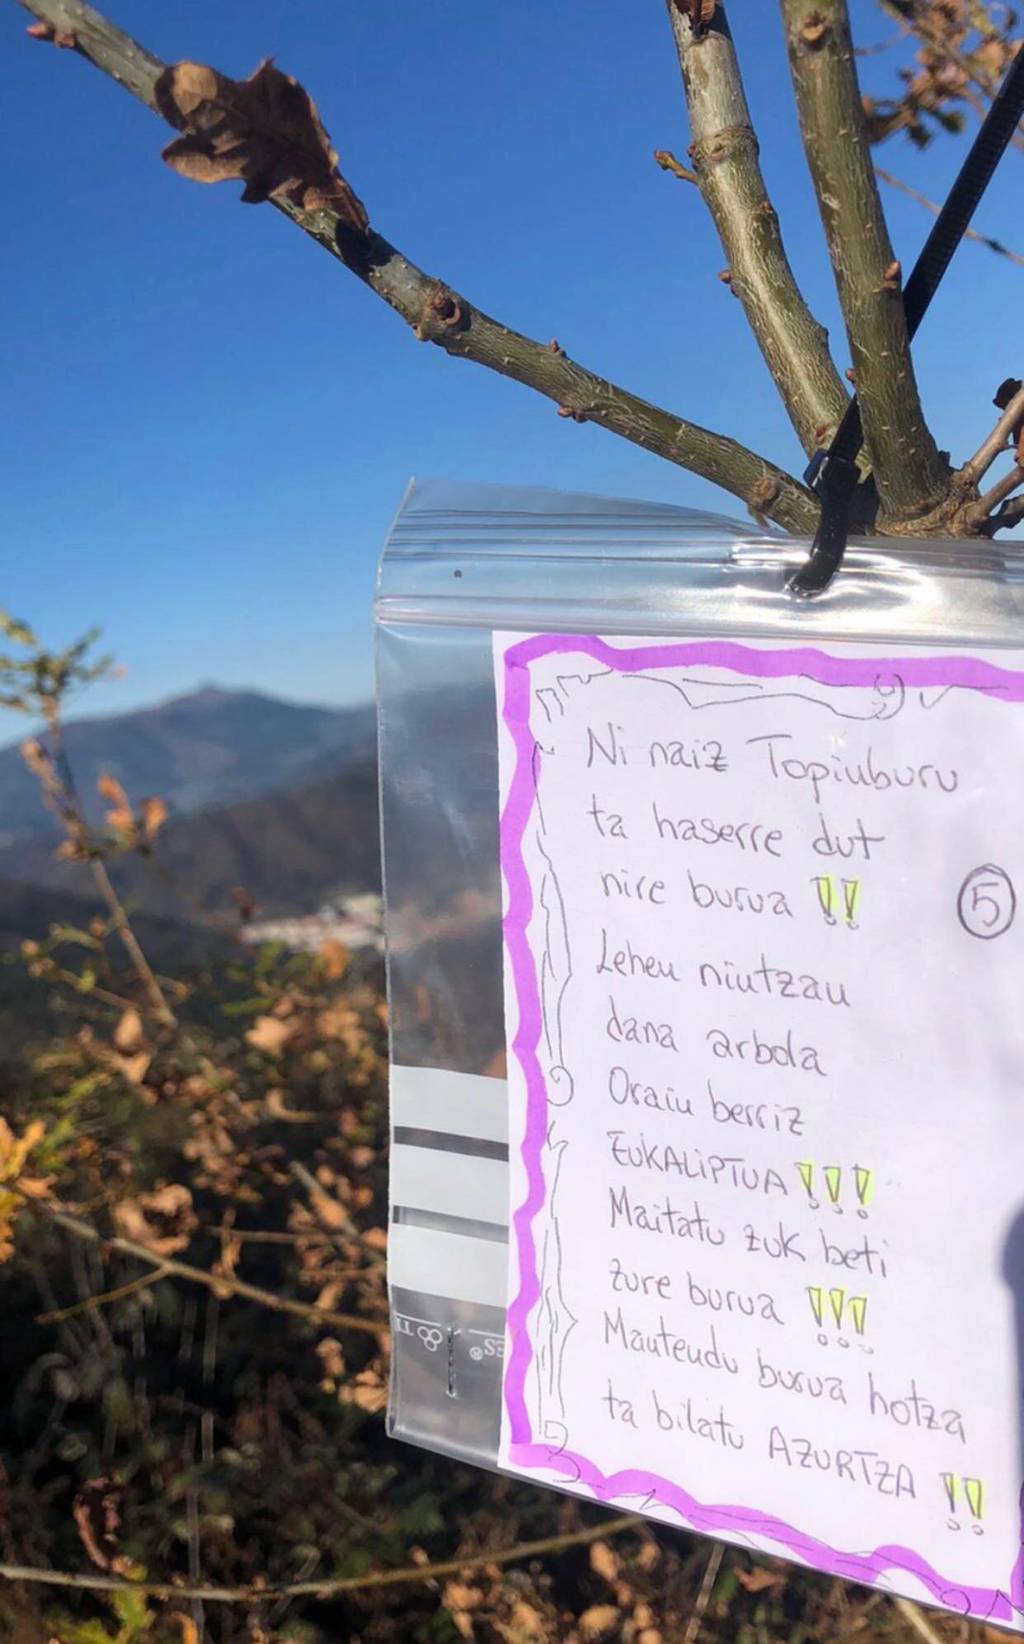 Ni naiz Topinburu
ta haserre dut
nire burua !!
5
Lehen nintzan
dana arbola
Orain berriz
EUKALiPTUA !!!
Maitatu zuk beti
zure burua !!!
Mantendu burua hotza
ta bilatu AZURTZA !!